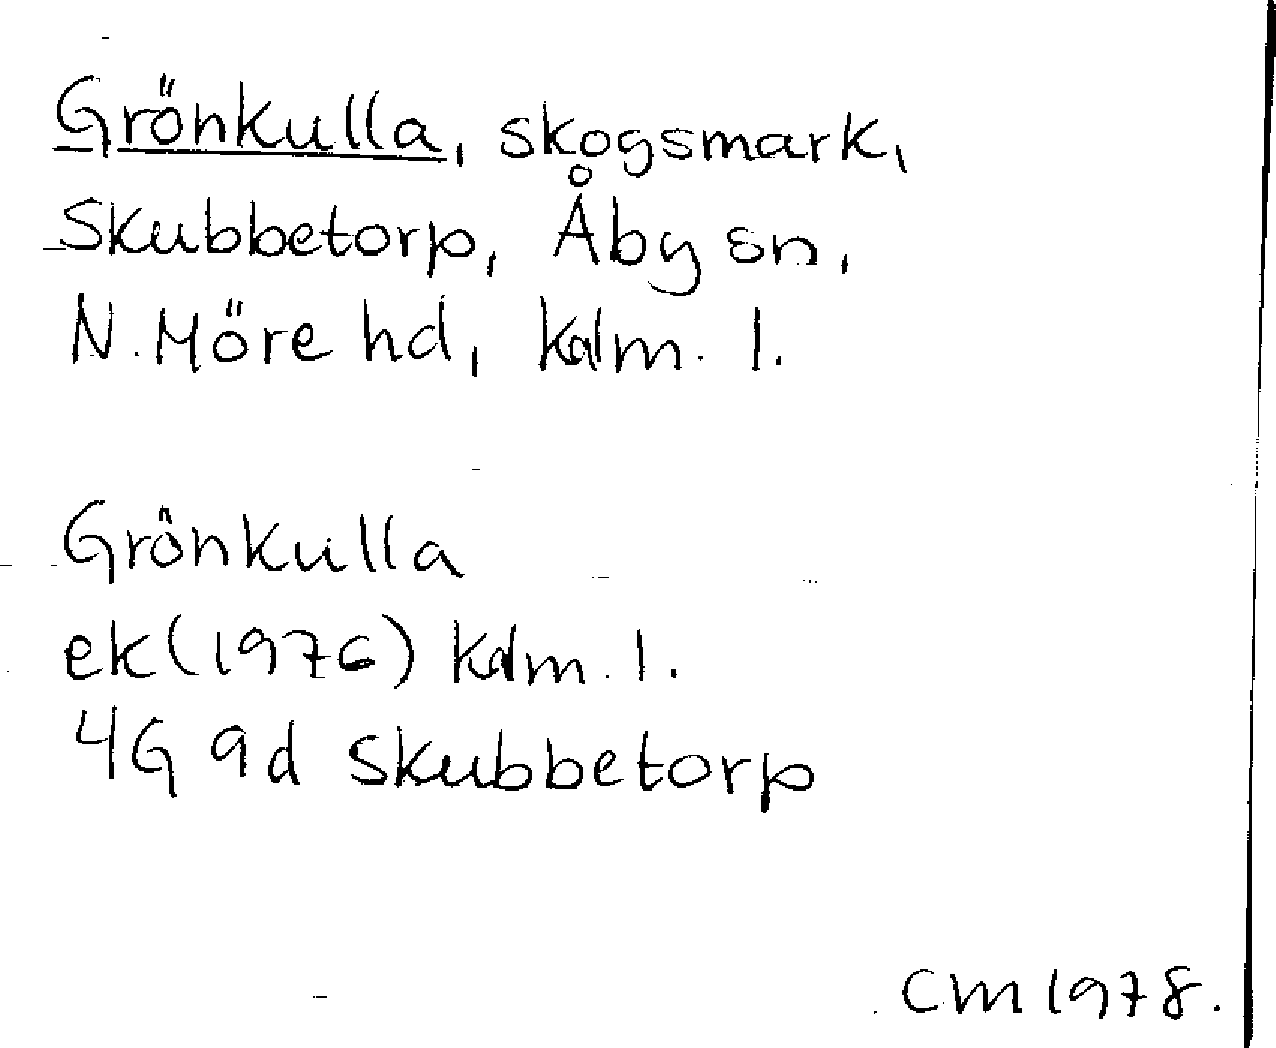 Grönkulla, skogsmark,
Skubbetorp, Åby sn,
N. Möre hd, Kalm. l.
Grönkulla
ek (1976) Kalm. l.
4G 9d Skubbetorp
CM 1978.